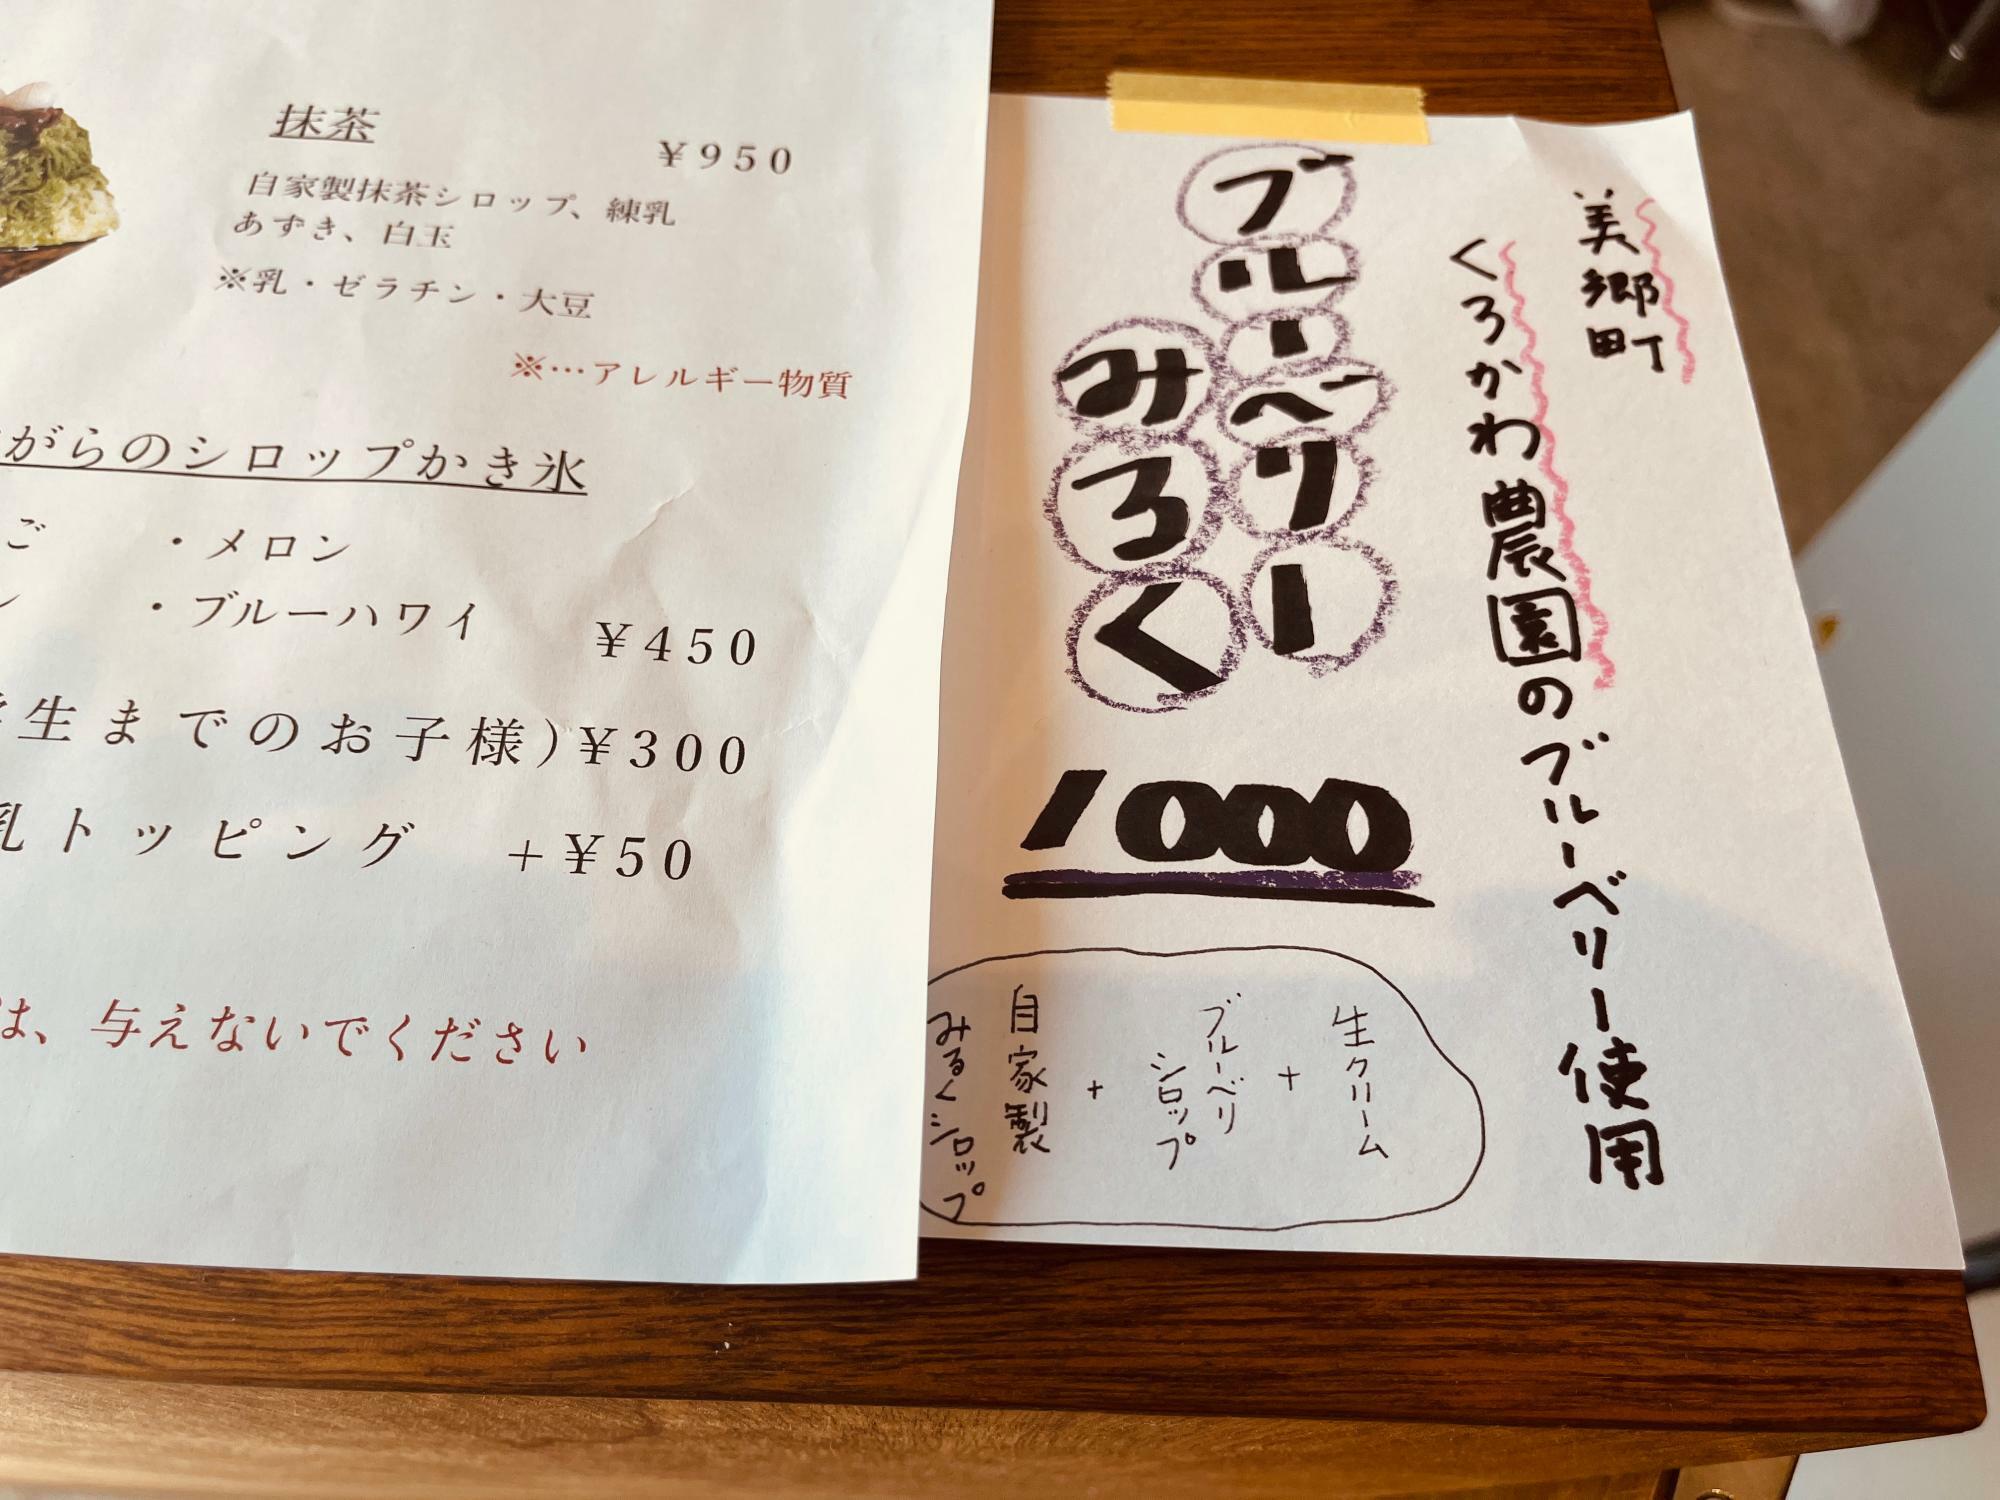 抹茶
¥950
自家製抹茶シロップ、練乳
あずき、白玉
※乳・ゼラチン・大豆
※…アレルギー物質
がらのシロップかき氷
ご ・メロン
ン ・ブルーハワイ
¥450
生までのお子様)¥300
乳トッピング +¥50
は、与えないでください
美郷町
くろかわ農園のブルーベリー使用
ブルーベリー
みろく
1000
生クリーム
+
ブルーベリ
シロップ
+
自家製
みるくシロップ